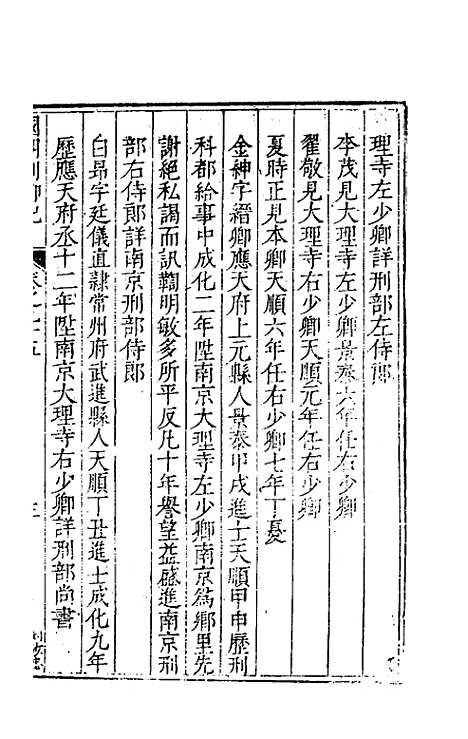 理寺左少卿詳刑部左侍郎
李茂見大理寺左少卿景泰六年任右少卿
翟敬見大理寺右少卿天順元年任右少卿
夏時正見本卿天順六年任右少卿七年丁憂
金紳字縉卿應天府上元縣人景泰甲戌進士天順甲申歷刑
科都給事中成化二年陞南京大理寺左少卿南京為鄉里先
謝絕私謁而訊鞫明敏多所平反凡十年譽望益盛進南京刑
部右侍郎詳南京刑部侍郎
白昂字廷儀直隸常州府武進縣人天順丁丑進士成化九年
歷應天府丞十二年陞南京大理寺右少卿詳刑部尚書
國朝列卿紀
卷之七十五